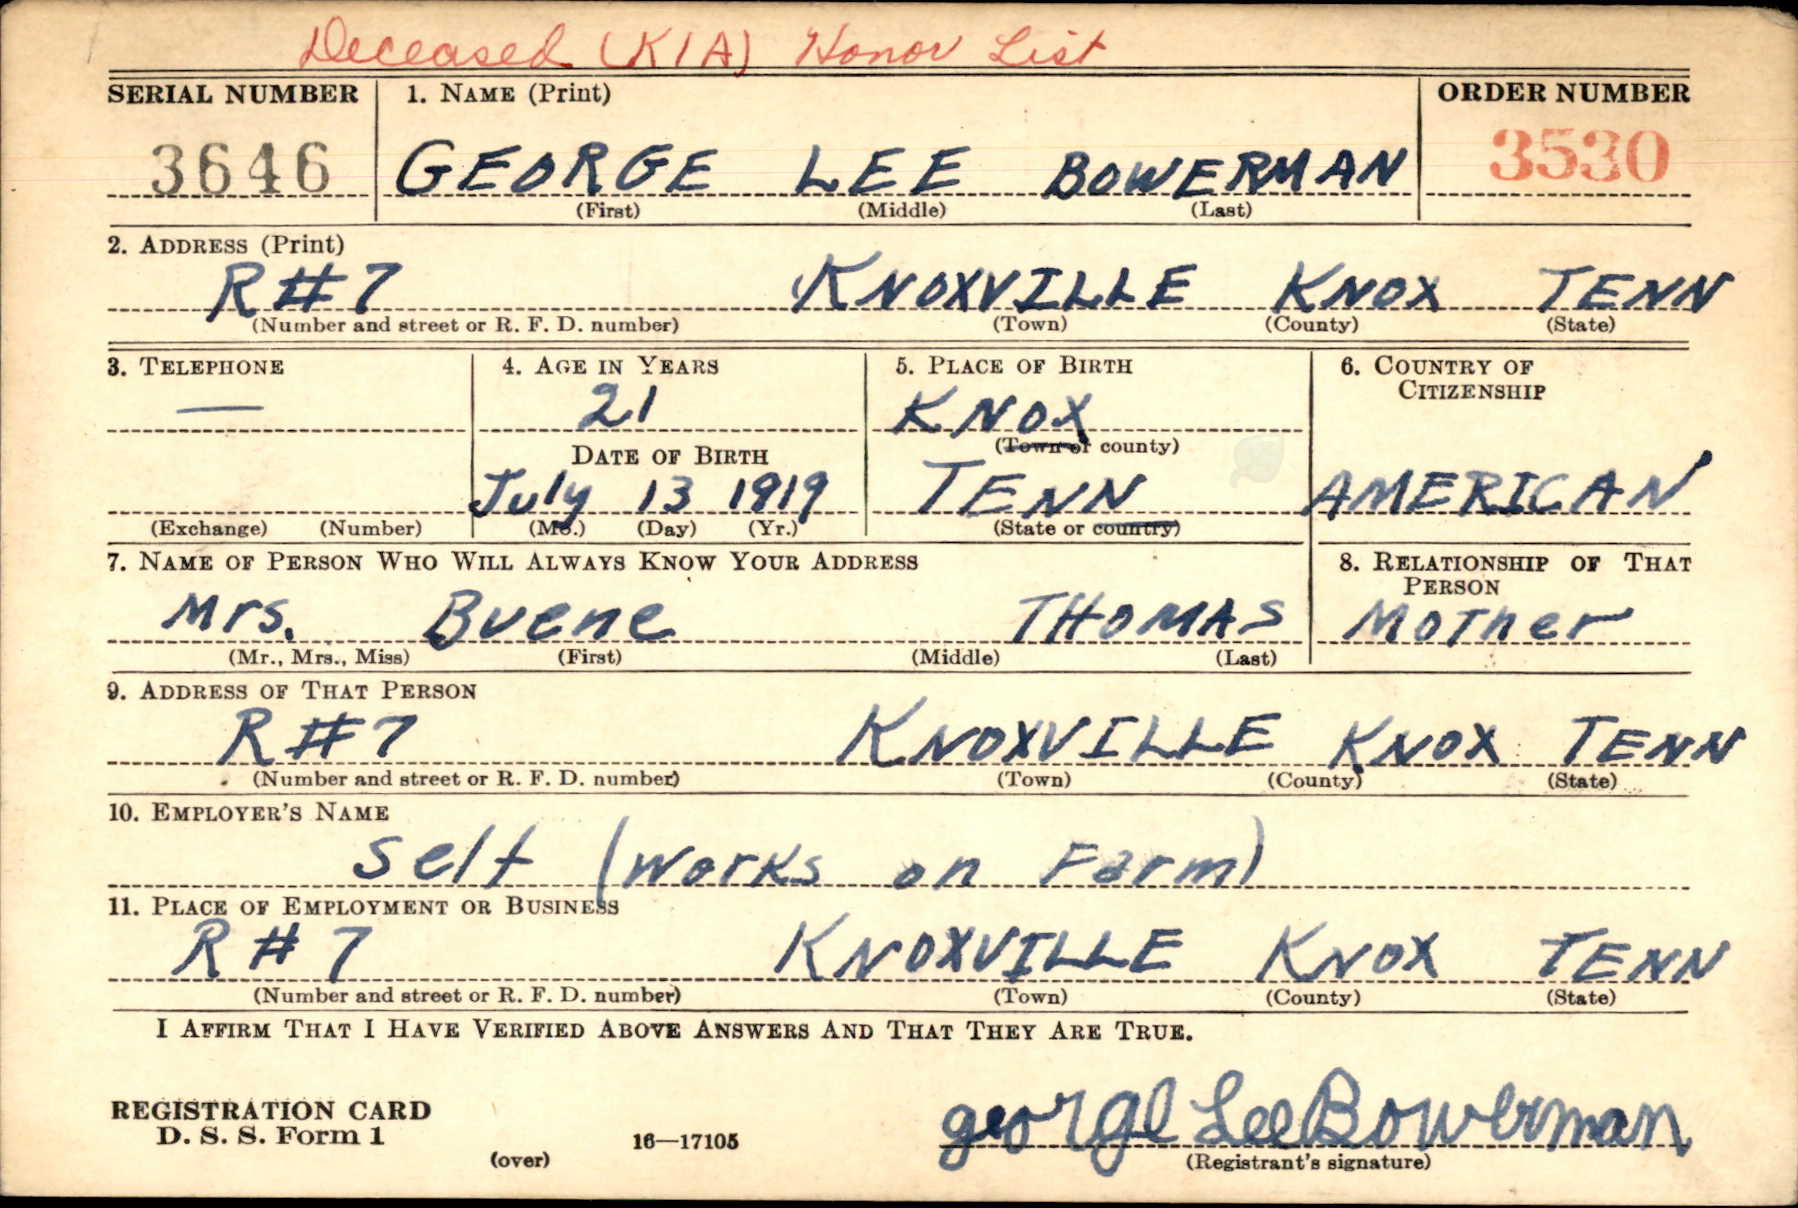 Deceased (KIA) Honor List
SERIAL NUMBER 1. NAME (Print) ORDER NUMBER
3646 GEORGE LEE BOWERMAN 3530
(First) (Middle) (Last)
2. ADDRESS (Print)
R#7 KNOXVILLE KNOX TENN
(Number and street or R. F. D. number) (Town) (County) (State)
3. TELEPHONE 4. AGE IN YEARS 5. PLACE OF BIRTH 6. COUNTRY OF
CITIZENSHIP
— 21 KNOX
(Town or county)
DATE OF BIRTH
July 13 1919 TENN AMERICAN
(Exchange) (Number) (Mo.) (Day) (Yr.) (State or country)
7. NAME OF PERSON WHO WILL ALWAYS KNOW YOUR ADDRESS 8. RELATIONSHIP OF THAT
PERSON
Mrs. Buene THOMAS Mother
(Mr., Mrs., Miss) (First) (Middle) (Last)
9. ADDRESS OF THAT PERSON
R#7 KNOXVILLE KNOX TENN
(Number and street or R. F. D. number) (Town) (County) (State)
10. EMPLOYER'S NAME
Self (Works on Farm)
11. PLACE OF EMPLOYMENT OR BUSINESS
R#7 KNOXVILLE KNOX TENN
(Number and street or R. F. D. number) (Town) (County) (State)
I AFFIRM THAT I HAVE VERIFIED ABOVE ANSWERS AND THAT THEY ARE TRUE.
REGISTRATION CARD
D. S. S. Form 1 16—17105 George Lee Bowerman
(over) (Registrant's signature)